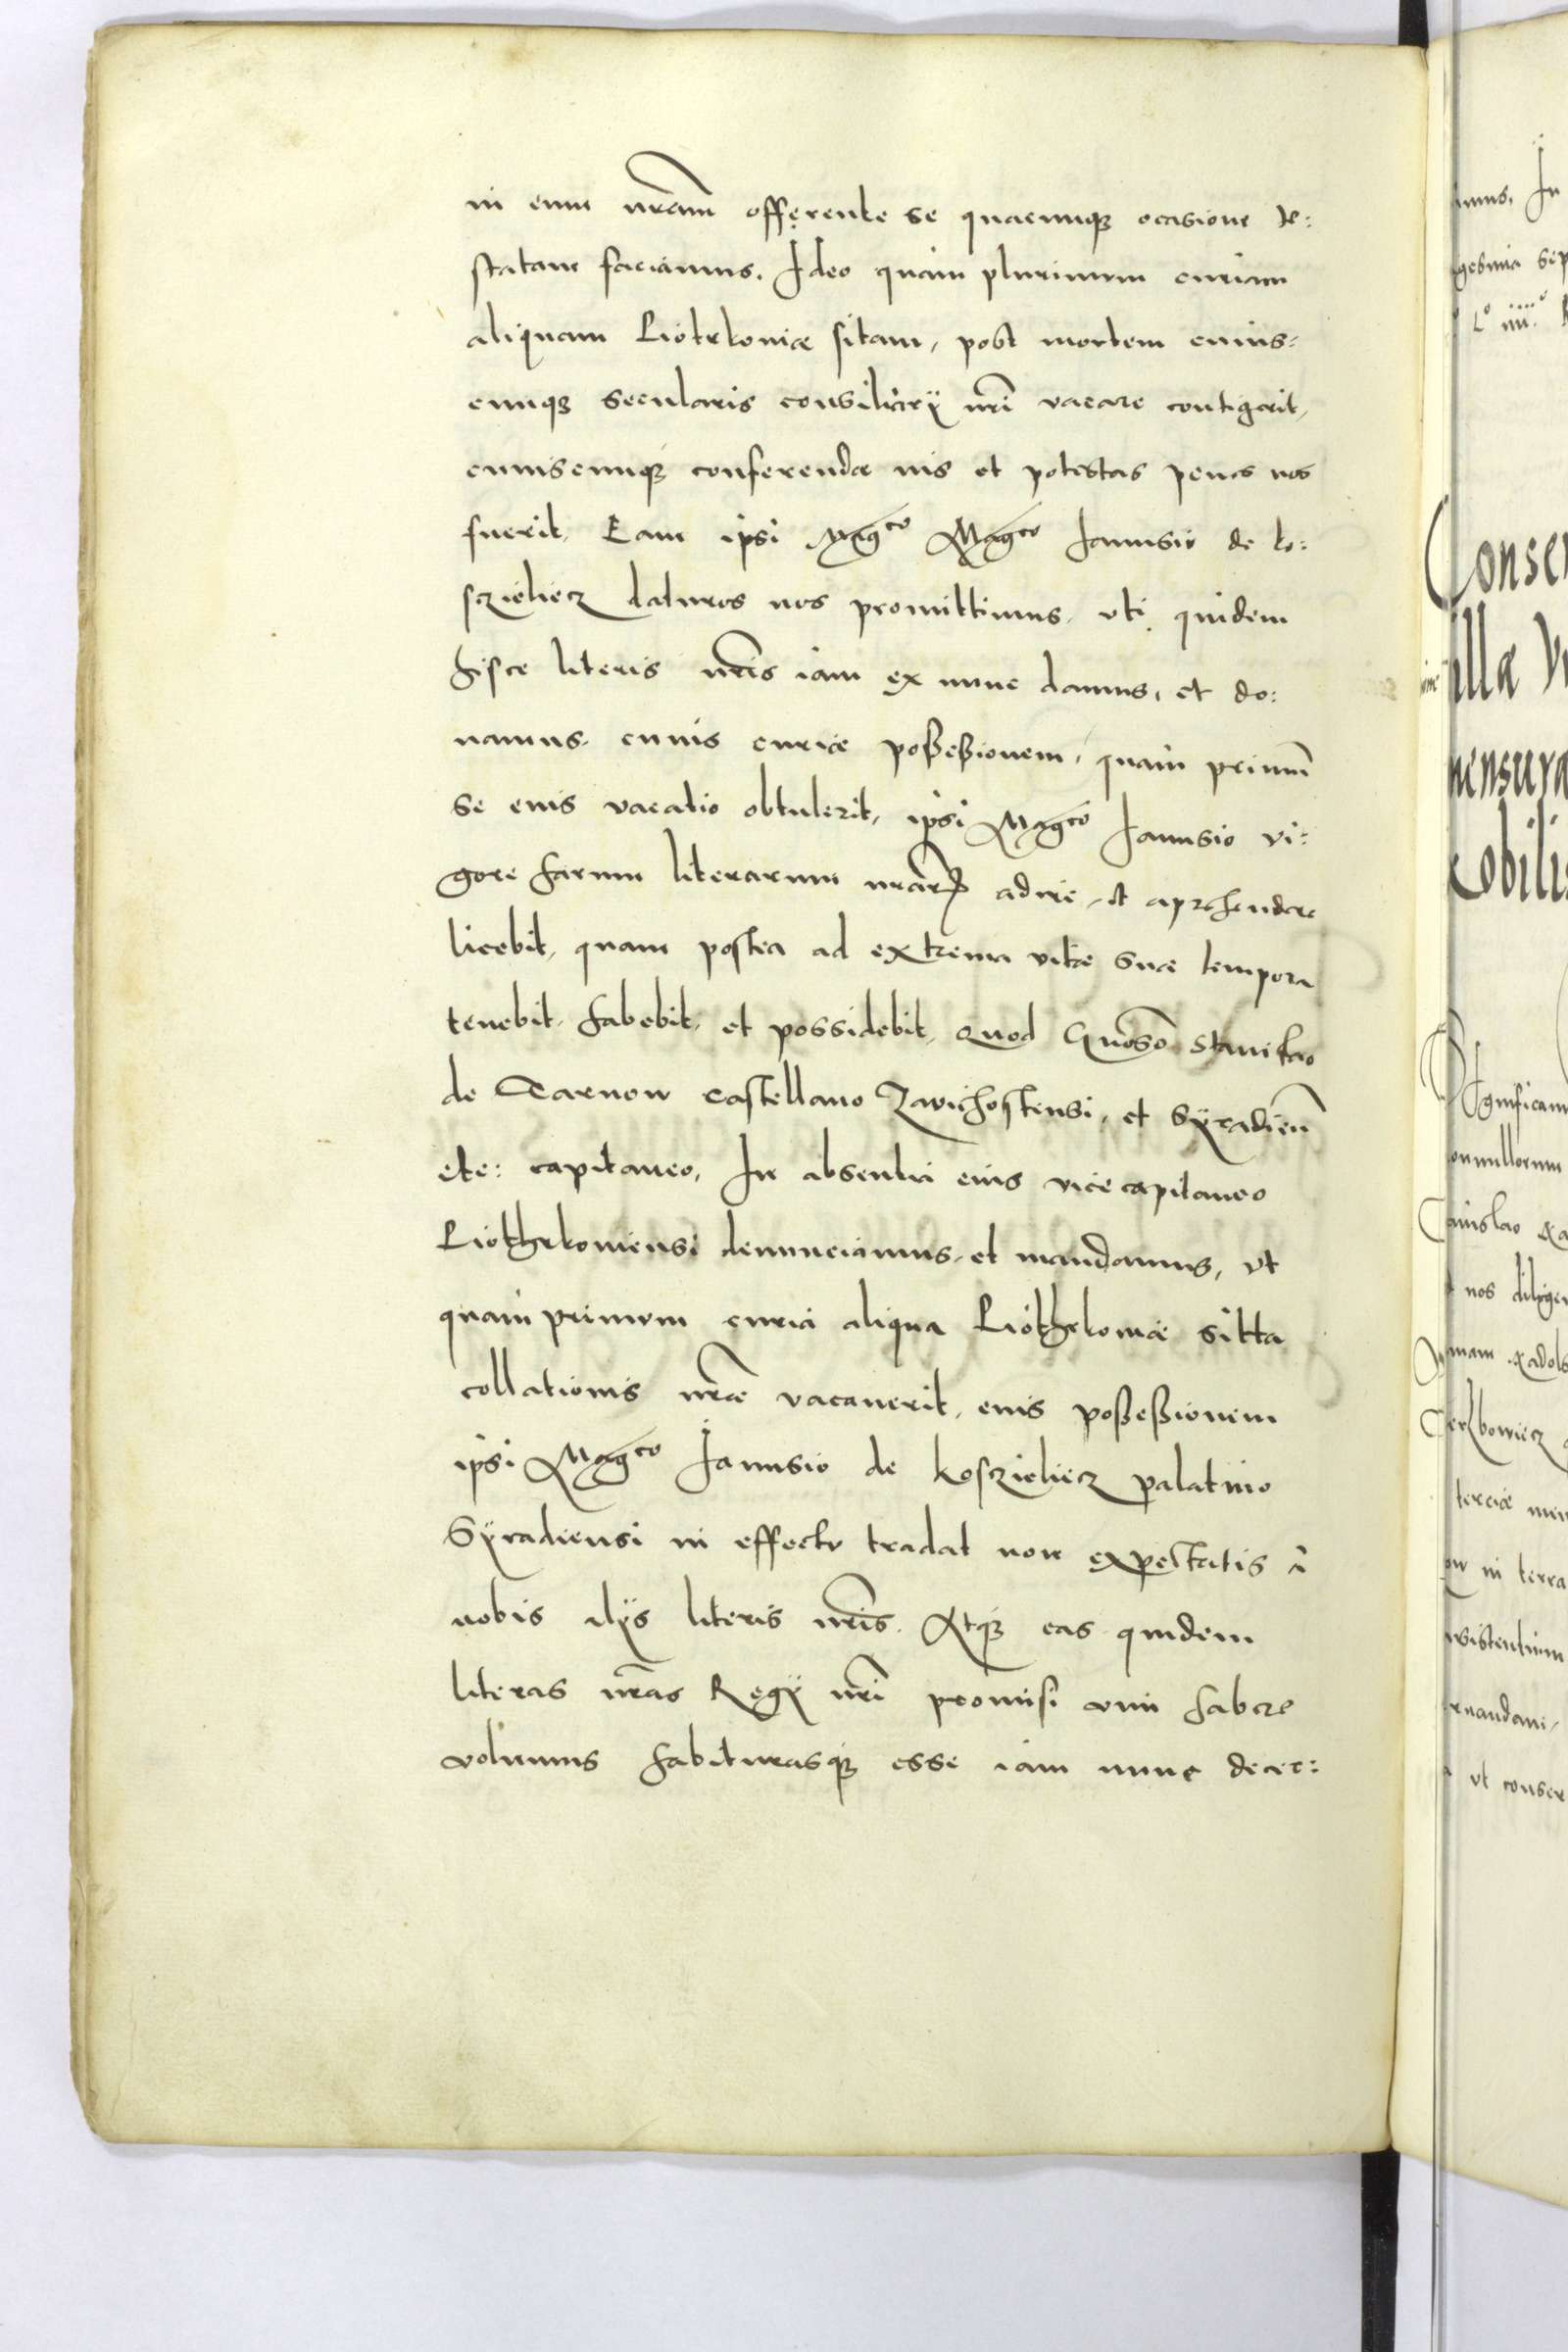 in eum nrãm offerente se quacunq̃ ocasione te:
statam faciamus. Ideo quàm plurimum curiam
aliquam Piotrkoviæ sitam, post mortem cuius=
cunq̃ secularis consiliarÿ nrĩ vacare contigerit,
cuiuscunq̃ conferendæ uis et potestas penes nos
fuerit, Eam ipsi Magco Janusio de ko:
sczieliecz daturos nos promittimus, uti quidem
hisce literis nrĩs iam ex nunc damus, et do:
namus, cuius curiæ poßeßionem, quam primũ
se eius vacatio obtulerit, ipsi Magco Janusio vi:
gore harum literarum nrãrũ adire, et aprehendere
licebit, quam postea ad extrema vitæ suæ tempora
tenebit, habebit, et possidebit, Quod Gnoso Stanislao
de Tarnow Castellano Zavichostensi, et Syradieñ
etc: capitaneo, In absentia eius vicecapitaneo
Piothrkoviensi denunciamus, et mandamus, ut
quam primum curia aliqua Piothrkoviæ sitta
collationis nræ vacaverit, eius poßeßionem
ipsi Magco Janusio de Kosczieliecz palatino
Syradiensi in effectu tradat non expectatis à
nobis alÿs literis nrĩs. Atq̃ eas quidem
literas nrãs Regÿ nrĩ promisi vim habere
volumus habiturasq̃ esse iam nunc decer:
imus. In
gesima sep
Lo iiiio
Conse
illæ
mensura
Nobilis
Significam
nonnullorum
tanislao
nos dilige
tercie
in terra
existentium
mandavi,
ut conser